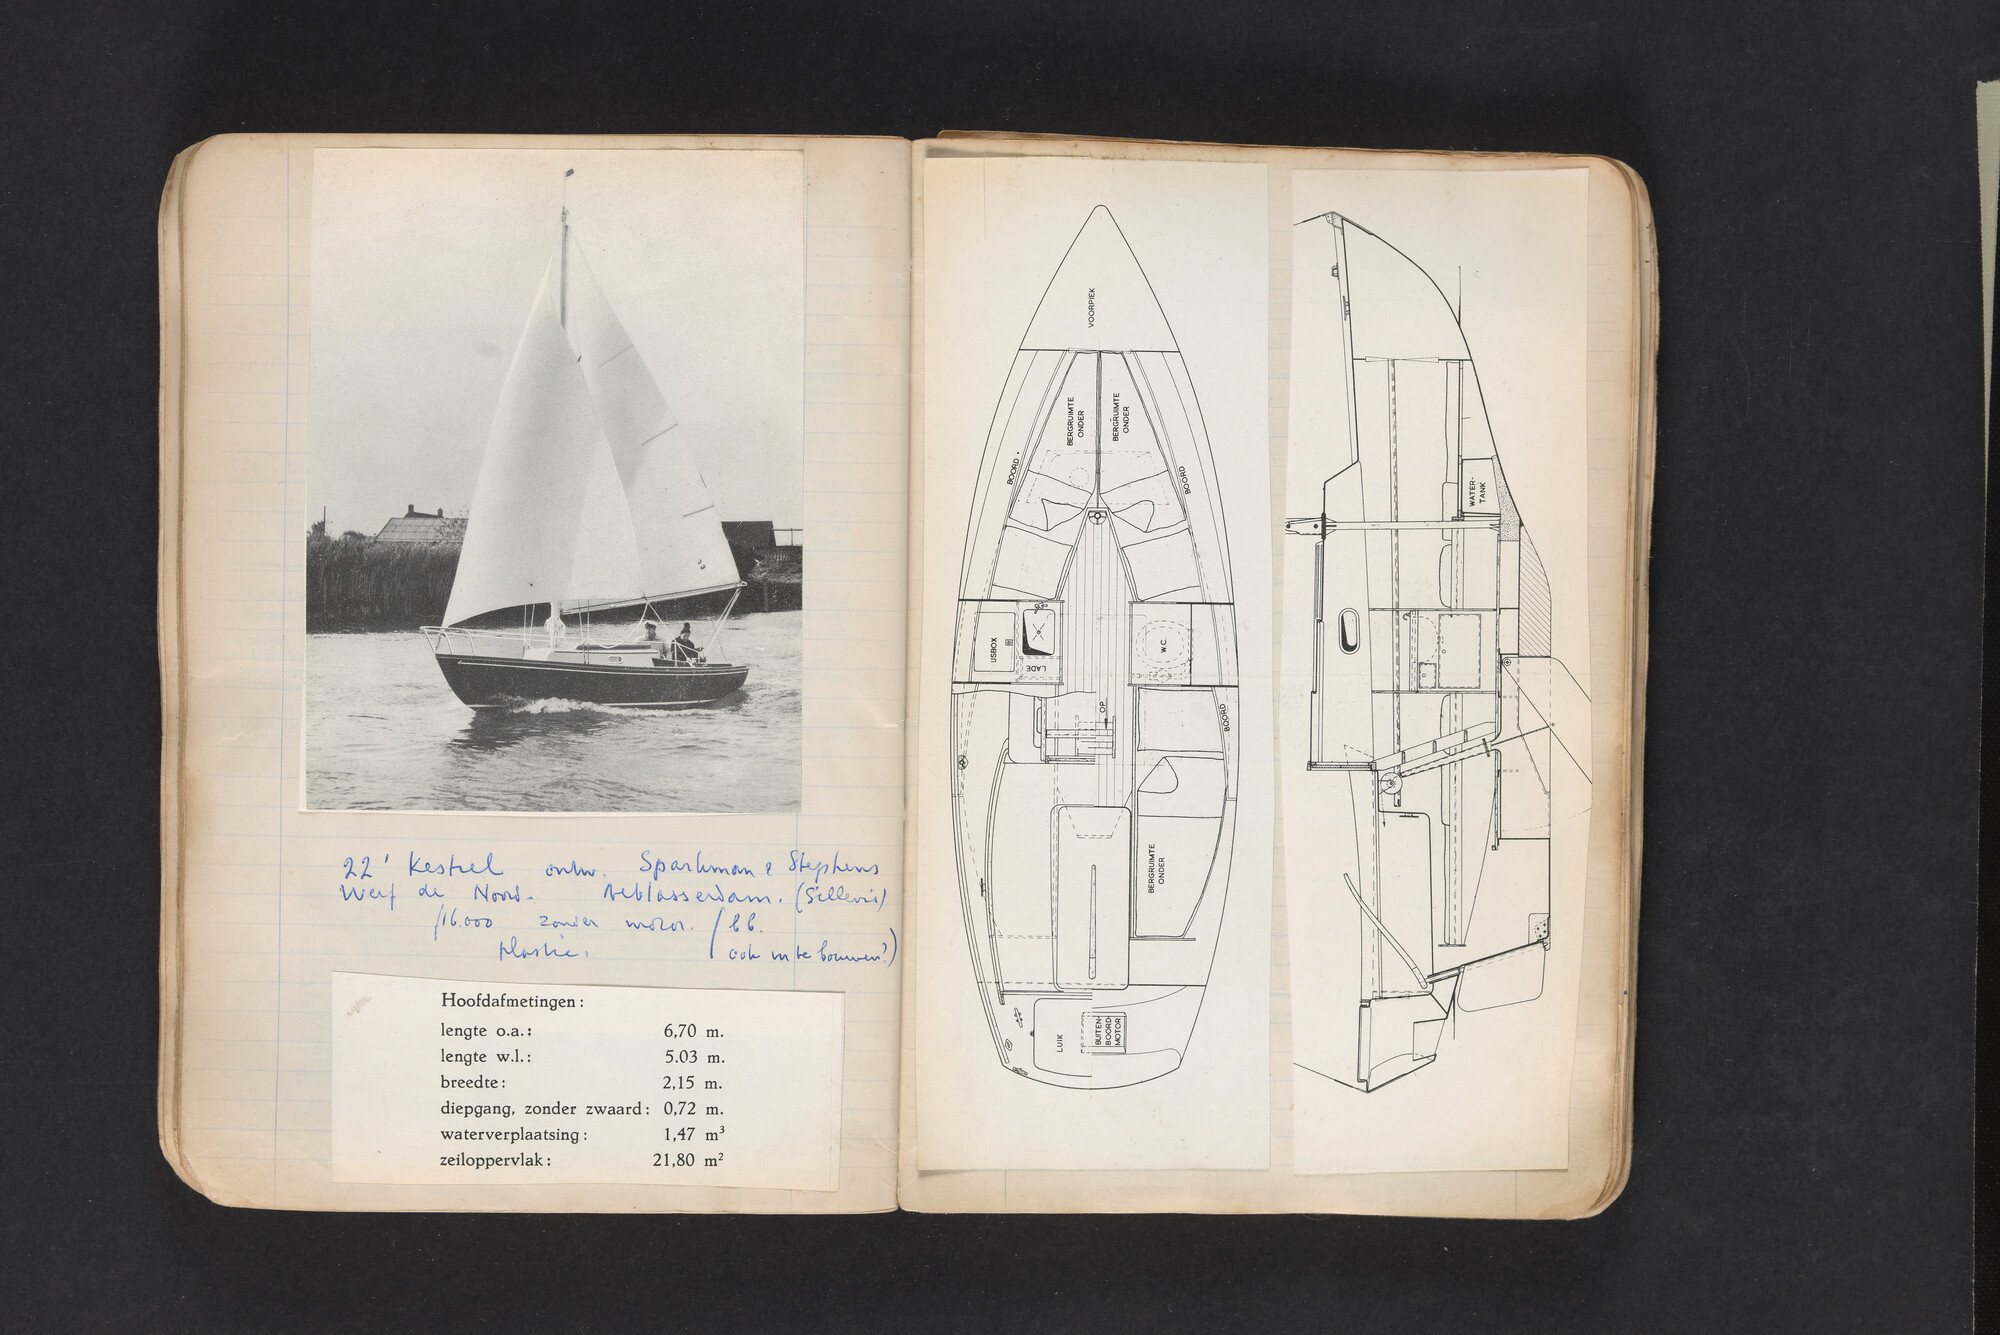 22' Kestrel ontw. Sparkman & Stephens
Werf de Noord. Alblasserdam. (Sillevis)
f16.000 zonder motor. / bb.
plastic. ook in te bouwen?)
Hoofdafmetingen:
lengte o.a.: 6,70 m.
lengte w.l.: 5.03 m.
breedte: 2,15 m.
diepgang, zonder zwaard: 0,72 m.
waterverplaatsing: 1,47 m³
zeiloppervlak: 21,80 m²
VOORPIEK
BERGRUIMTE
ONDER
BERGRUIMTE
ONDER
BOORD
BOORD
IJSBOX
LADE
W.C.
OP
BOORD
BERGRUIMTE
ONDER
LUIK
BUITEN-
BOORD
MOTOR
WATER-
TANK